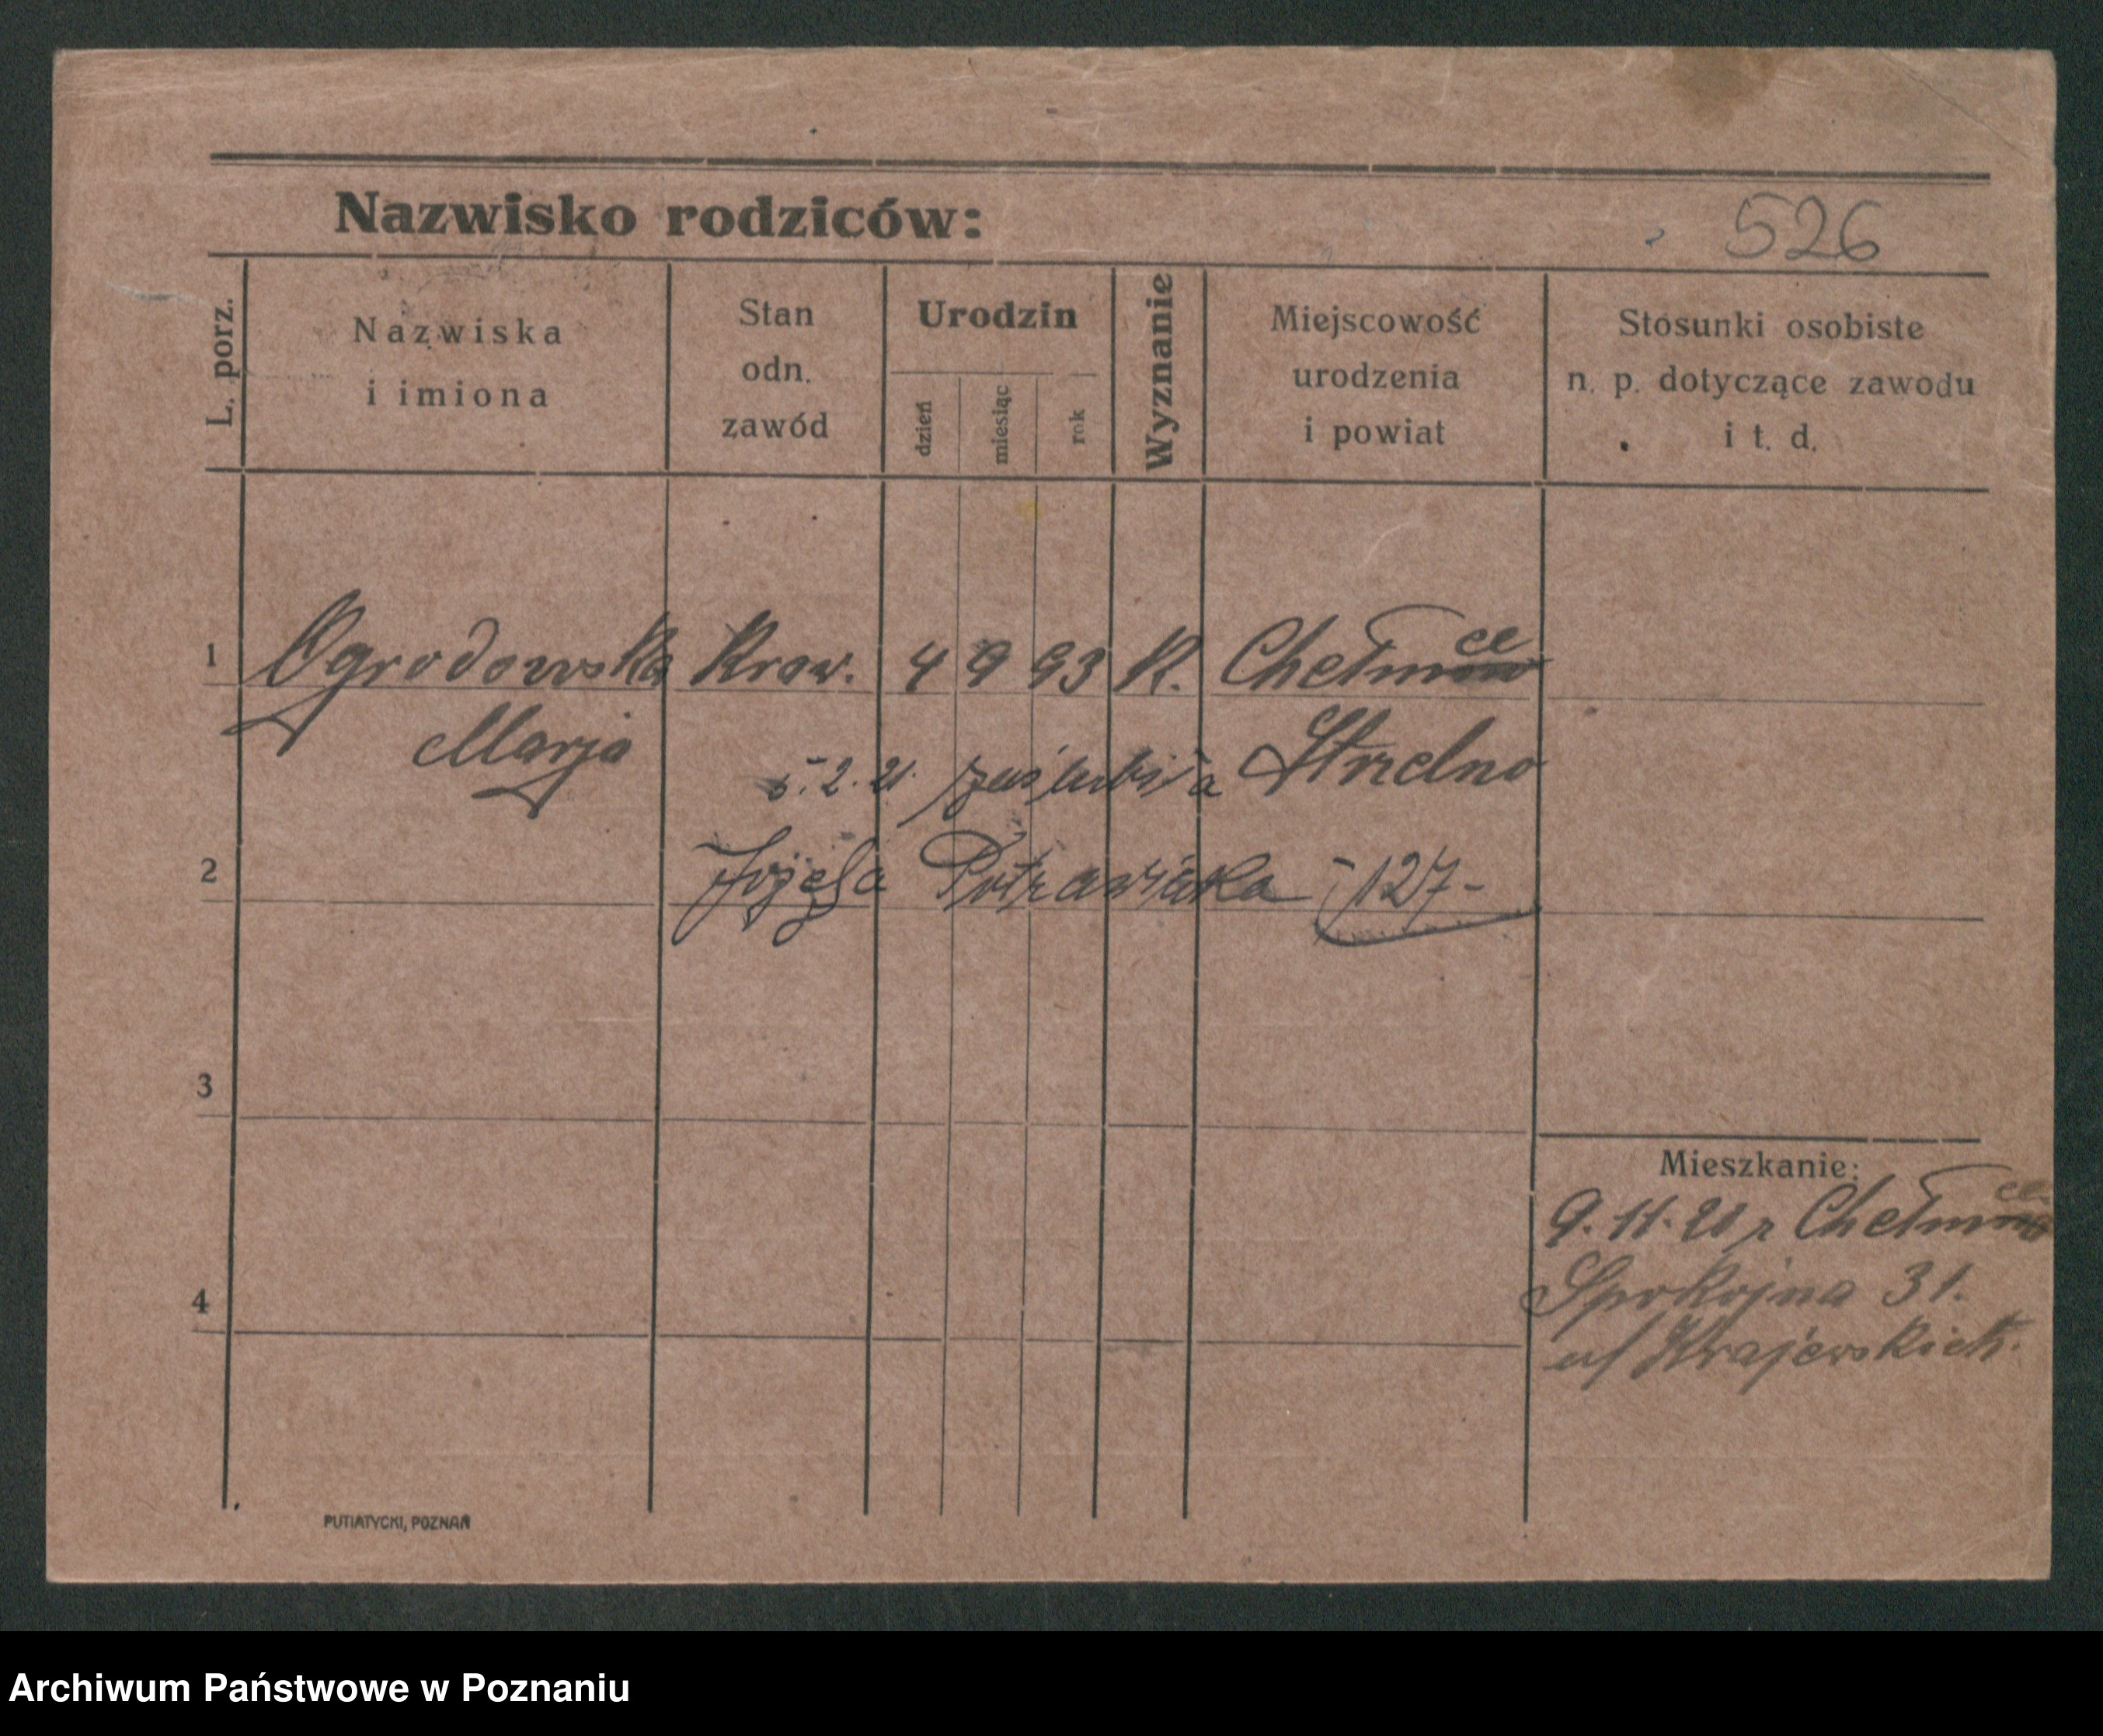 Nazwisko rodziców:
526
L. porz.
Nazwiska
i imiona
Stan
odn.
zawód
Urodzin
dzień
miesiąc
rok
Wyznanie
Miejscowość
urodzenia
i powiat
Stosunki osobiste
n. p. dotyczące zawodu
i t. d.
1 Ogrodowska Kraw. 4 9 93 K. Chełmce
Marja
Strzelno
5.2.21. zaślubiła
2 Józefa Potrawiaka -127-
3
Mieszkanie:
9.11.20 z Chełmce
Spokojna 31.
4
u/ Krajewskich.
PUTIATYCKI, POZNAŃ
Archiwum Państwowe w Poznaniu